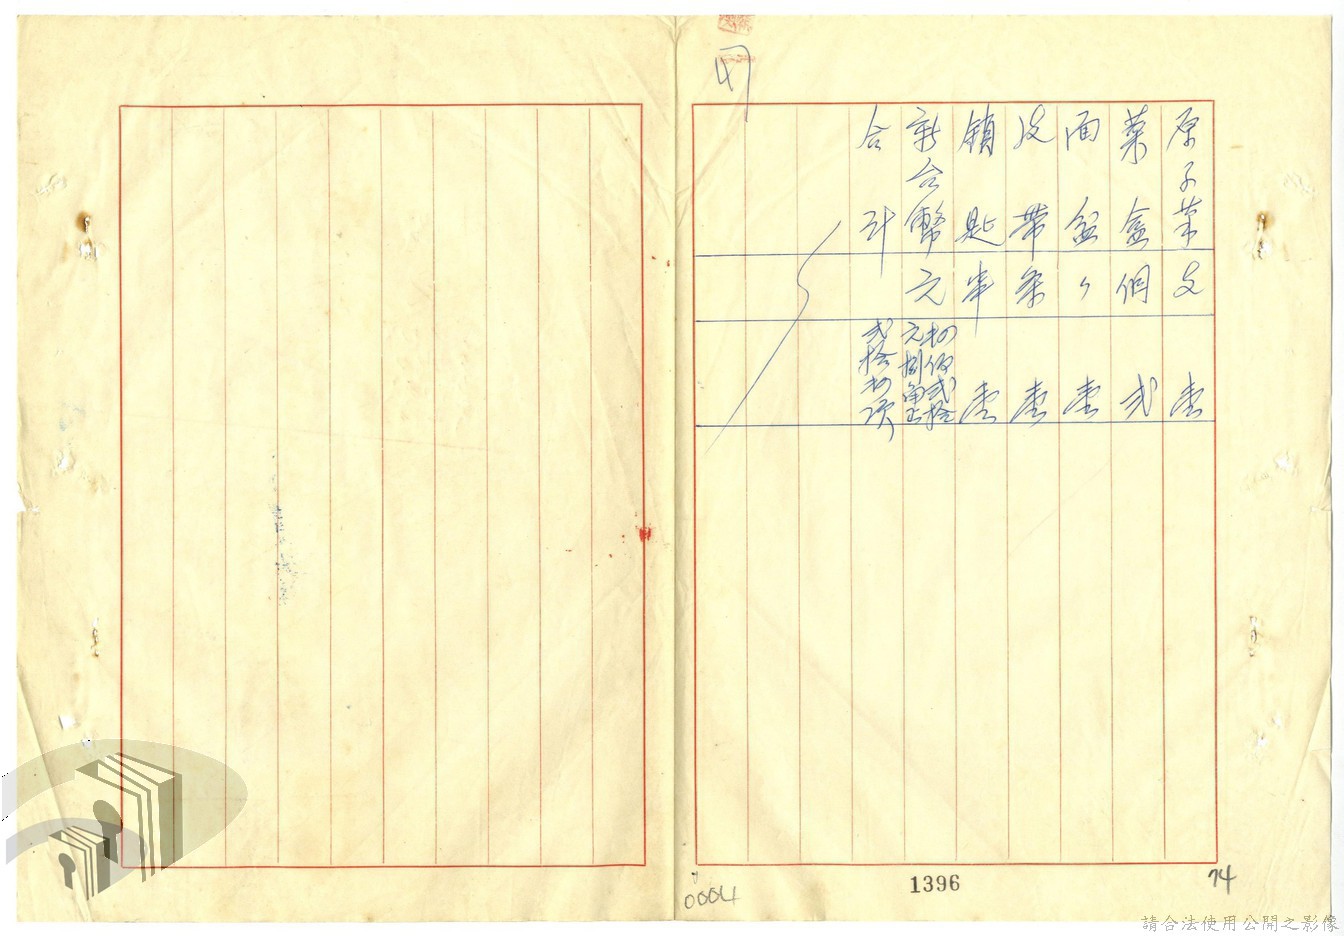 原子筆 支 壹
菜盒 個 弍
面盆 〃 壹
皮帶 条 壹
鎖匙 串 壹
新台幣 元 捌角正
合計 弍拾 項
0004
1396
74
請合法使用公開之影像